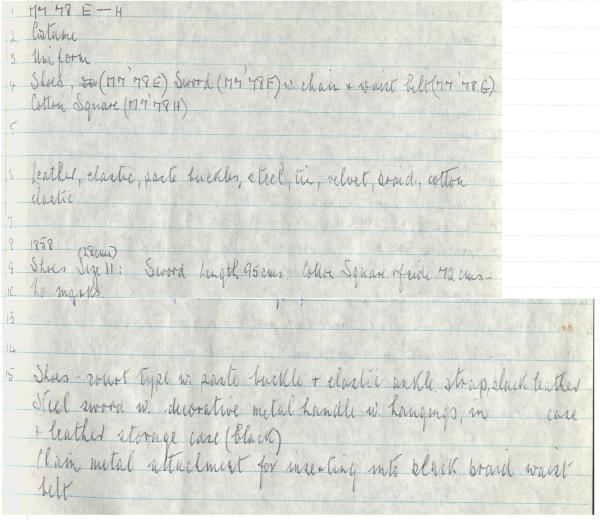 1. M7'78 E-H
2 Costume
3. Uniform
4 Shoes, (M7'78E) Sword (M7'78F) w. chain + waist belt (M7'78G)
Cotton Square (M7'78H)
5
6 Leather, elastic, paste buckles, steel, tin, velvet, braid, cotton
elastic
7.
8 1858
(28cms)
9 Shoes Size 11: Sword Length 95cms. Cotton Square of side 72 cms-
10. No marks
13
14
15 Shoes - court type w. paste buckle + elastic ankle strap, black leather
Steel sword w. decorative metal handle w. hangings, in case
+ leather storage case (black)
Chain metal attachment for inserting into black braid waist
belt.